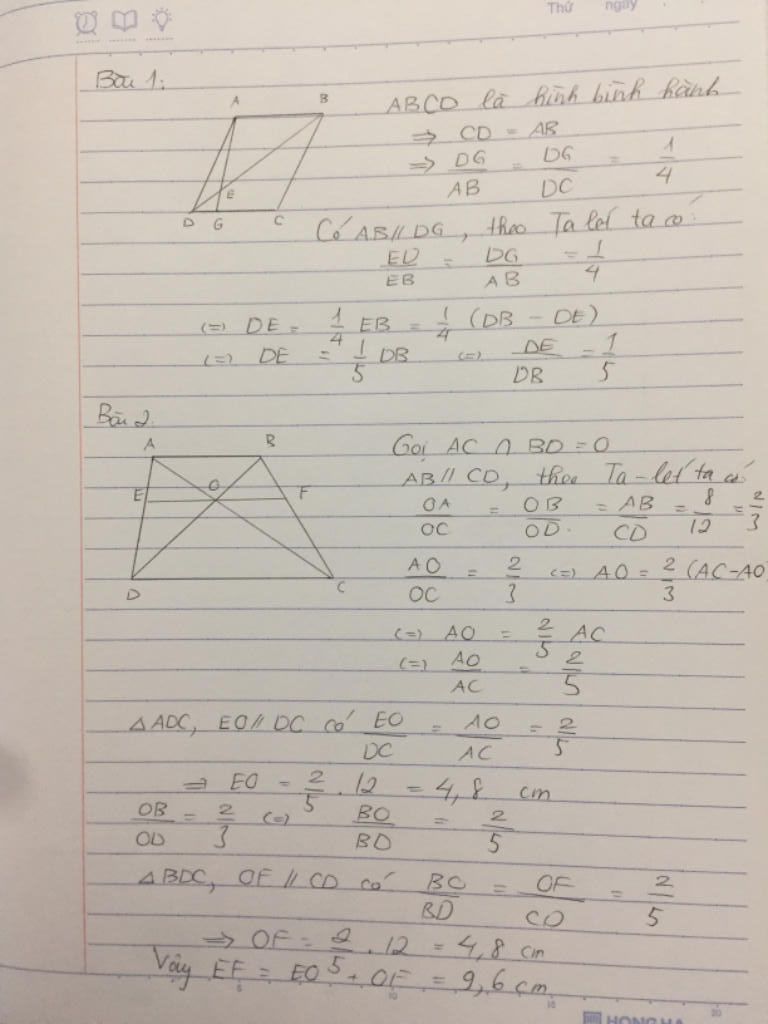 Thứ ngày
Bài 1:
A B
E
D G C
ABCD là hình bình hành
⇒ CD = AB
⇒ DG/AB = DG/DC = 1/4
Có AB // DG, theo Ta let ta có:
ED/EB = DG/AB = 1/4
(=) DE = 1/4 EB = 1/4 (DB - DE)
(=) DE = 1/5 DB (=) DE/DB = 1/5
Bài 2.
A B
E O F
D C
Gọi AC ∩ BD = O
AB // CD, theo Ta-let ta có
OA/OC = OB/OD = AB/CD = 8/12 = 2/3
AO/OC = 2/3 (=) AO = 2/3 (AC-AO)
(=) AO = 2/5 AC
(=) AO/AC = 2/5
△ADC, EO // DC có EO/DC = AO/AC = 2/5
⇒ EO = 2/5 . 12 = 4,8 cm
OB/OD = 2/3 (=) BO/BD = 2/5
△BDC, OF // CD có BO/BD = OF/CD = 2/5
⇒ OF = 2/5 . 12 = 4,8 cm
Vậy EF = EO + OF = 9,6 cm
5 10 15 20
HONG HA